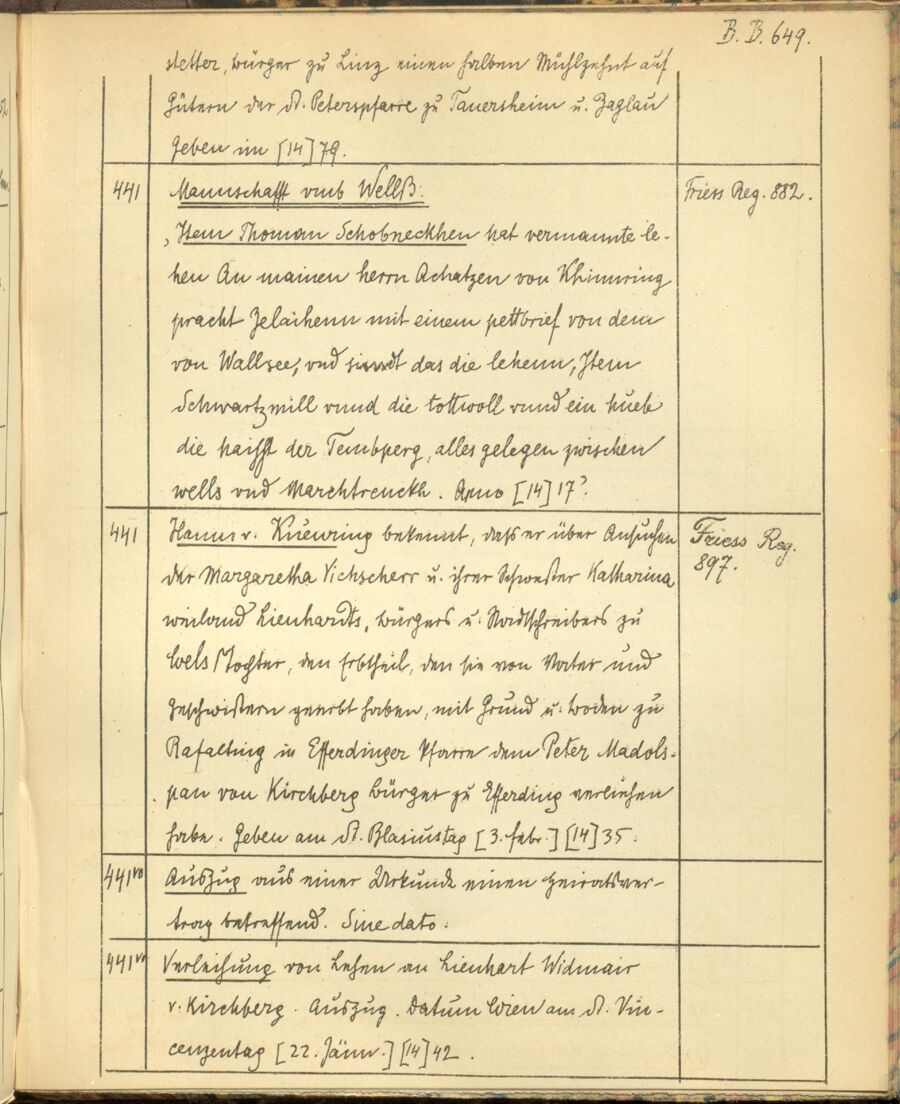 B. B. 649.
stetter, bürger zu Linz einen halben Mühlzehnt auf
Gütern der St. Peterspfarre zu Tauersheim u. Zaglau
Geben im [14]79.
441 Mannschafft umb Wellß: Friess Reg. 882.
„Item Thoman Schobneckhen hat vermannte le-
hen An mainen herrn Achatzen von Khinnring
pracht Zelaihenn mit einem pettbrief von dem
von Wallsee, vnd sinndt das die lehenn, Item
Schwartzmill vnnd die tottwoll vnnd ein hueb
die haißt der Tembperg, alles gelegen zwischen
wells vnd Marchtrenckh. Anno [14]17?
441 Hanns v. Kuenring bekennt, dass er über Ansuchen Friess Reg.
der Margaretha Vichscherr u. ihrer Schwester Katharina 897.
weiland Lienhardts, bürgers u. Stadtschreibers zu
Wels Tochter, den Erbtheil, den sie von Vater und
Geschwistern geerbt haben, mit Grund u. boden zu
Rafalting in Efferdinger Pfarre dem Peter Madols-
pan von Kirchberg bürger zu Efferding verliehen
habe. Geben am St. Blasiustag [3. febr.] [14]35.
441vo Auszug aus einer Urkunde einen Heiratsver-
trag betreffend. Sine dato.
441vo Verleihung von Lehen an Lienhart Widmair
v. Kirchberg. Auszug. Datum Wien am St. Vin-
cenzentag [22. Jänn.] [14]42.